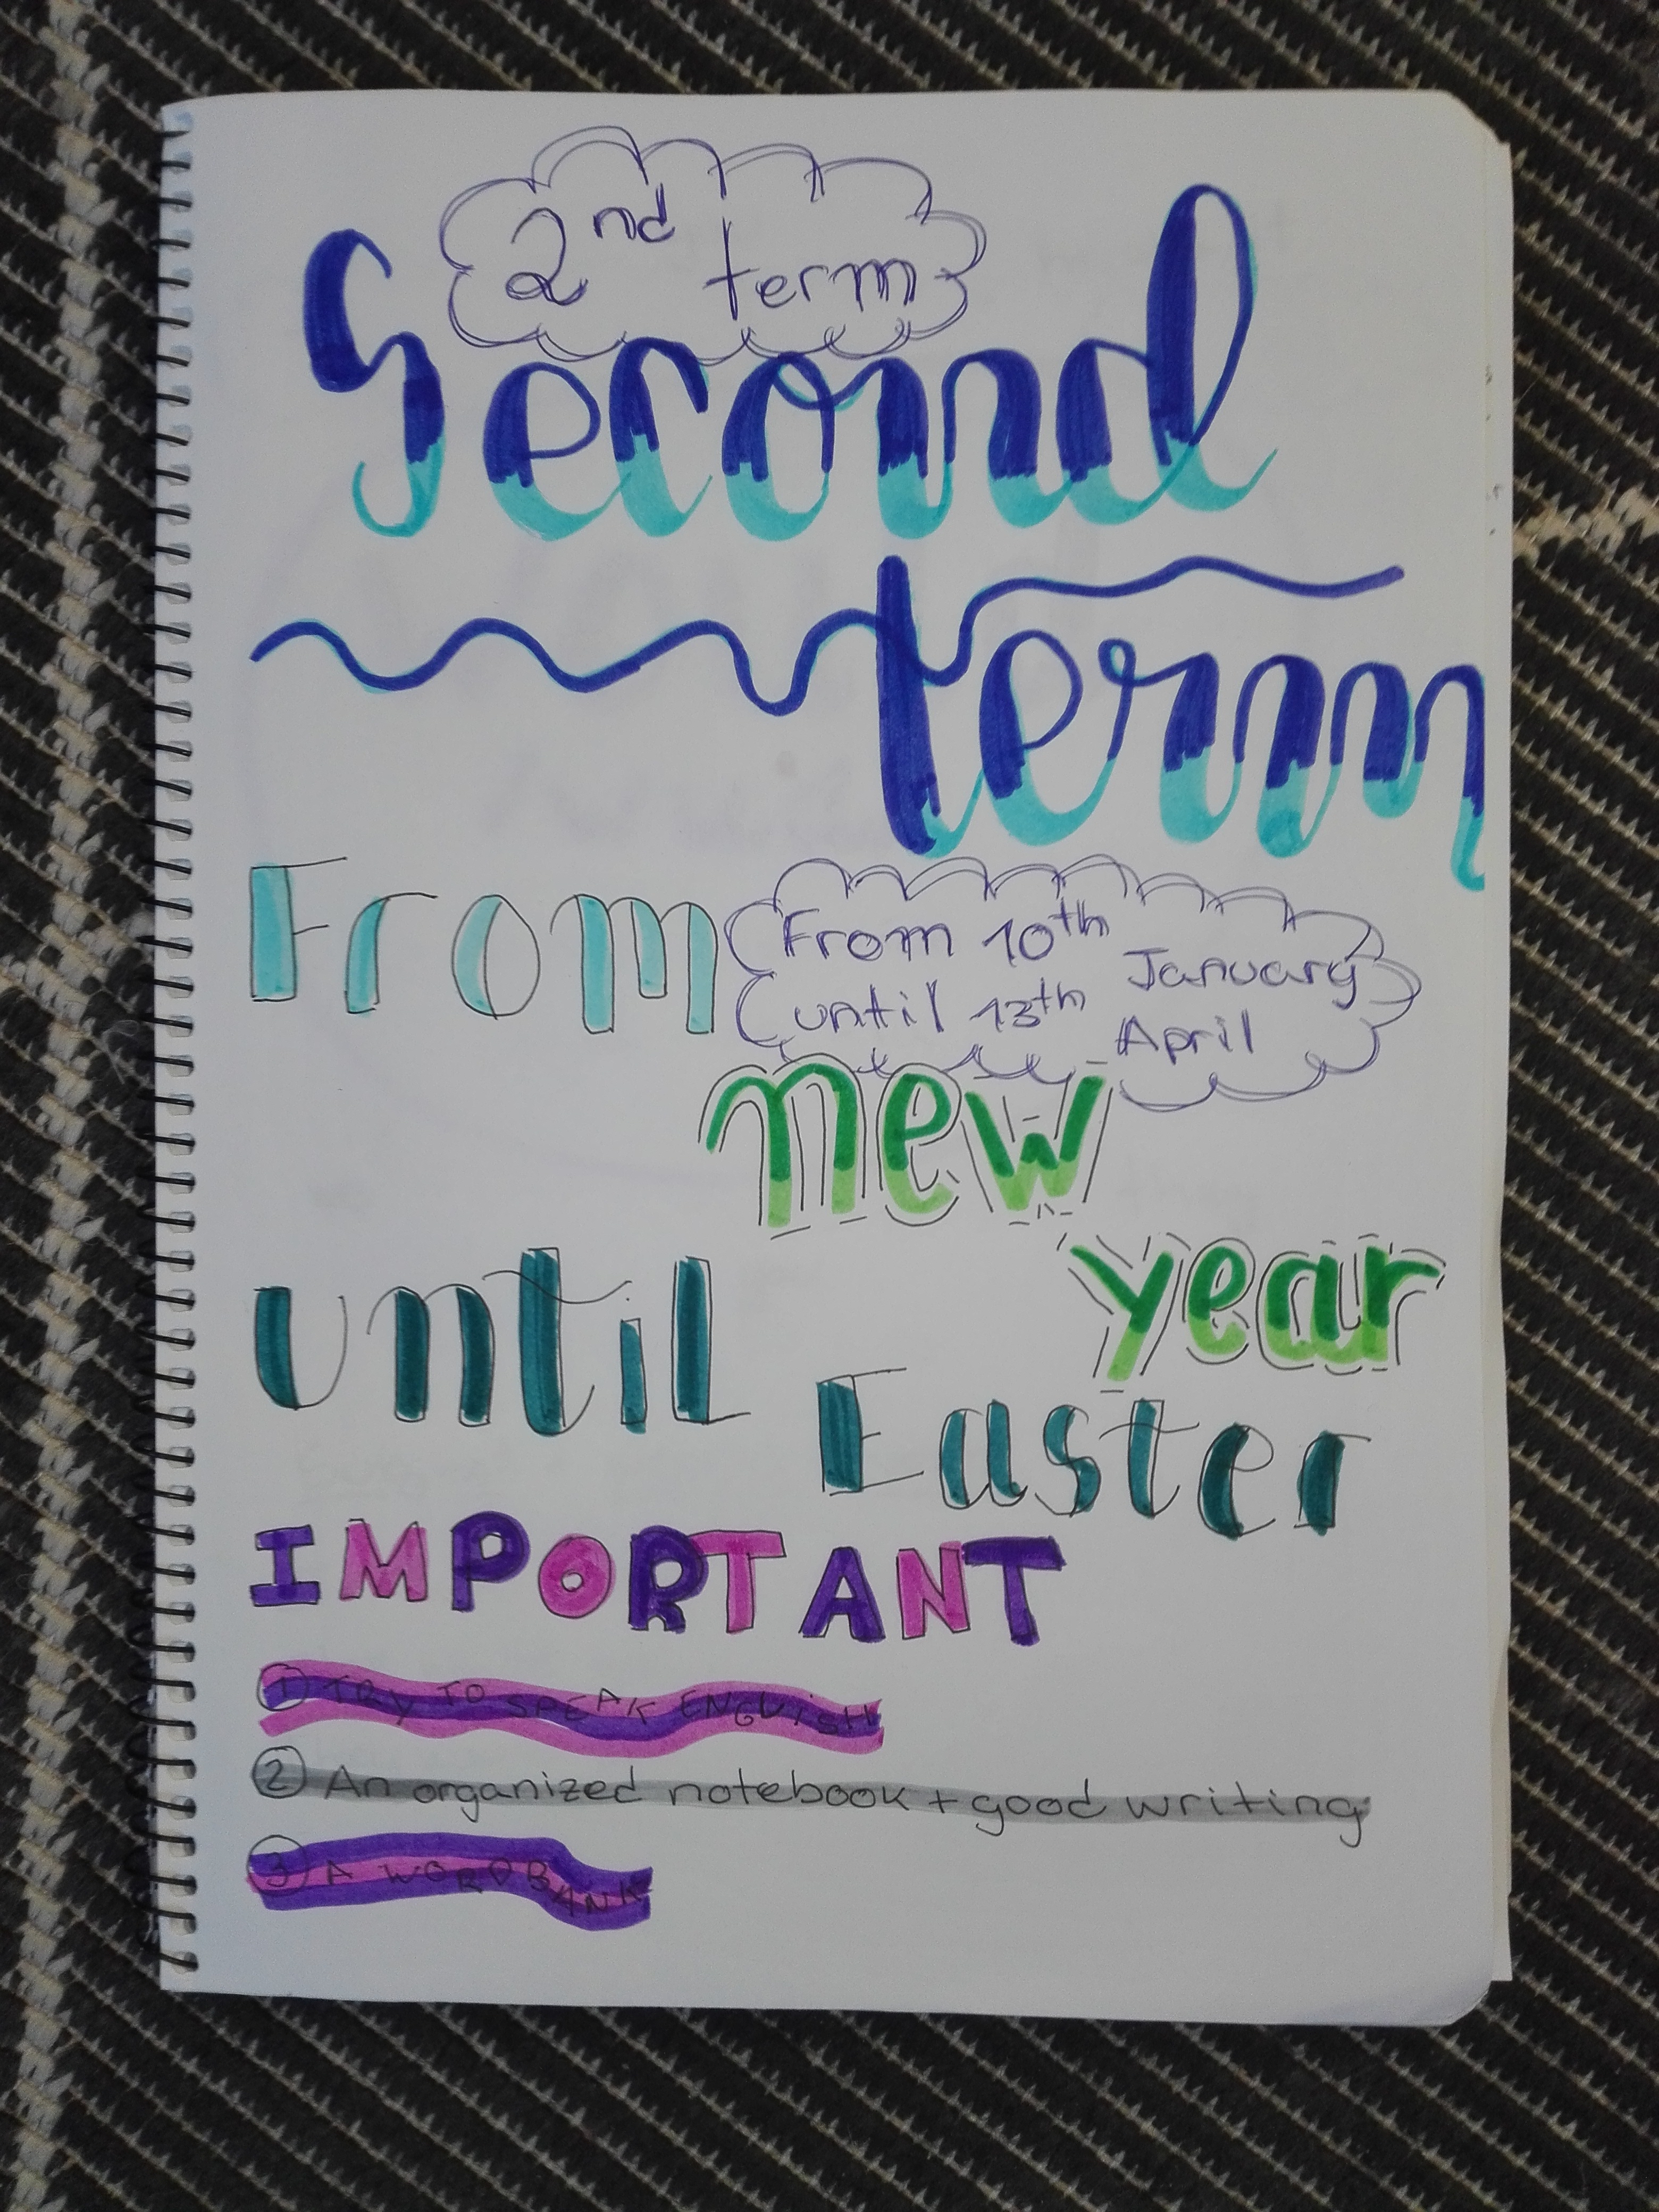 2nd term
Second
term
From
From 10th January
until 13th April
new
year
until
Easter
IMPORTANT
① TRY TO SPEAK ENGLISH
② An organized notebook + good writing
③ A WORDBANK